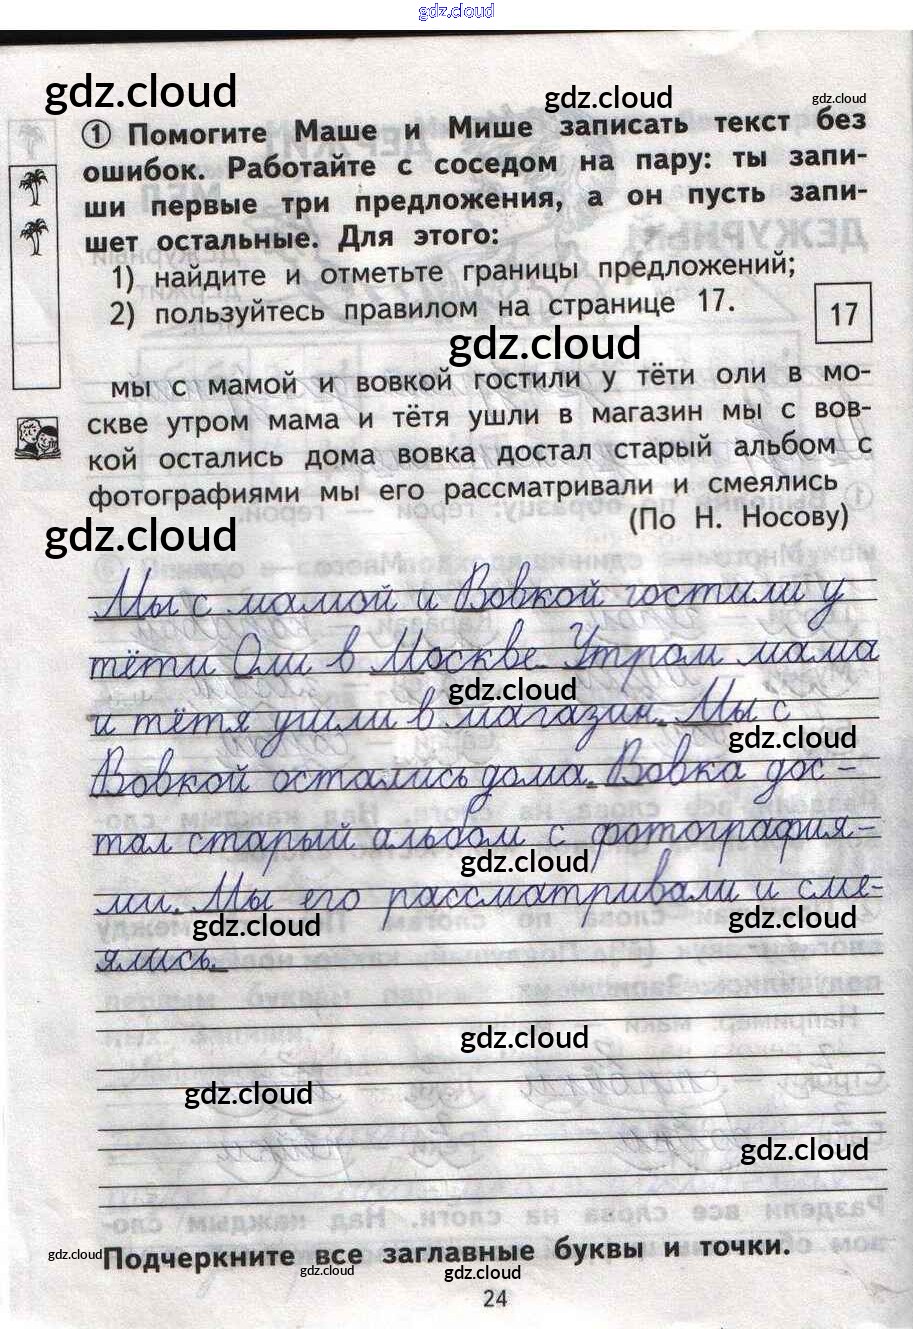 gdz.cloud
gdz.cloud
gdz.cloud
gdz.cloud
1 Помогите Маше и Мише записать текст без
ошибок. Работайте с соседом на пару: ты запи-
ши первые три предложения, а он пусть запи-
шет остальные. Для этого:
1) найдите и отметьте границы предложений;
2) пользуйтесь правилом на странице 17.
17
gdz.cloud
мы с мамой и вовкой гостили у тёти оли в мо-
скве утром мама и тётя ушли в магазин мы с вов-
кой остались дома вовка достал старый альбом с
фотографиями мы его рассматривали и смеялись
(По Н. Носову)
gdz.cloud
Мы с мамой и Вовкой гостили у
тёти Оли в Москве. Утром мама
gdz.cloud
и тётя ушли в магазин. Мы с
gdz.cloud
Вовкой остались дома. Вовка дос-
тал старый альбом с фотография-
gdz.cloud
ми. Мы его рассматривали и сме-
gdz.cloud
gdz.cloud
ялись.
gdz.cloud
gdz.cloud
gdz.cloud
Подчеркните все заглавные буквы и точки.
gdz.cloud
gdz.cloud
gdz.cloud
24